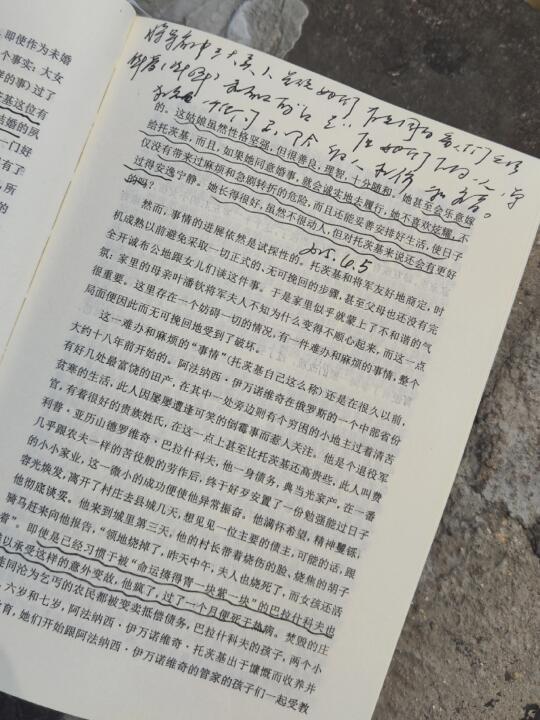 ，即使作为未婚
个事实；大女
样的事）过了
基这位有
结婚的夙
一门好
有了
，所
的
的。这姑娘虽然性格坚强，但很善良，理智，十分随和，她甚至会乐意嫁
给托茨基，而且，如果她同意婚事，就会诚实地去履行，她不喜欢炫耀，不
仅没有带来过麻烦和急剧转折的危险，而且还能妥善安排好生活，使日子
过得安逸宁静。她长得很好，虽然不很动人，但对托茨基来说还会有更好
的吗？
然而，事情的进展依然是试探性的。托茨基和将军友好地商定，时
机成熟以前避免采取一切正式的、无可挽回的步骤，甚至父母也还没有完
全开诚布公地跟女儿们谈这件事。于是家里似乎就蒙上了不和谐的气
氛，家里的母亲叶潘钦将军夫人不知为什么变得不顺心起来，而这一点
很重要。这里存在一个妨碍一切的情况，有一件难办和麻烦的事情，整个
局面便因此而无可挽回地受到了破坏。
这一难办和麻烦的“事情”（托茨基自己这么称）还是在很久以前，
大约十八年前开始的。阿法纳西·伊万诺维奇在俄罗斯的一个中部省份
有好几处最富饶的田产，在其中一处旁边则有个穷困的小地主过着清苦
贫寒的生活，此人因屡屡遭逢可笑的倒霉事而惹人关注。他是个退役军
官，有着很好的贵族姓氏，在这一点上甚至比托茨基还高贵些，此人叫费
利普·亚历山德罗维奇·巴拉什科夫，他一身债务，典当光家产，在一番
几乎跟农夫一样的苦役般的劳作后，终于好歹安置了一份勉强能过日子
的小小家业，这一微小的成功便使他异常振奋。他满怀希望，精神矍铄，
容光焕发，离开了村庄去县城几天，想见见一位主要的债主，可能的话，跟
他彻底谈妥。他来到城里第三天，他的村长带着烧伤的脸、烧焦的胡子
骑马赶来向他报告，“领地烧掉了，昨天中午，夫人也烧死了，而女孩还活
着”。即使是已经习惯于被“命运揍得青一块紫一块”的巴拉什科夫也
以承受这样的意外变故，他疯了，过了一个月便死于热病。焚毁的庄
连同沦为乞丐的农民都被变卖抵偿债务，巴拉什科夫的孩子，两个小
，六岁和七岁，阿法纳西·伊万诺维奇·托茨基出于慷慨而收养并
育，她们开始跟阿法纳西·伊万诺维奇的管家的孩子们一起受教